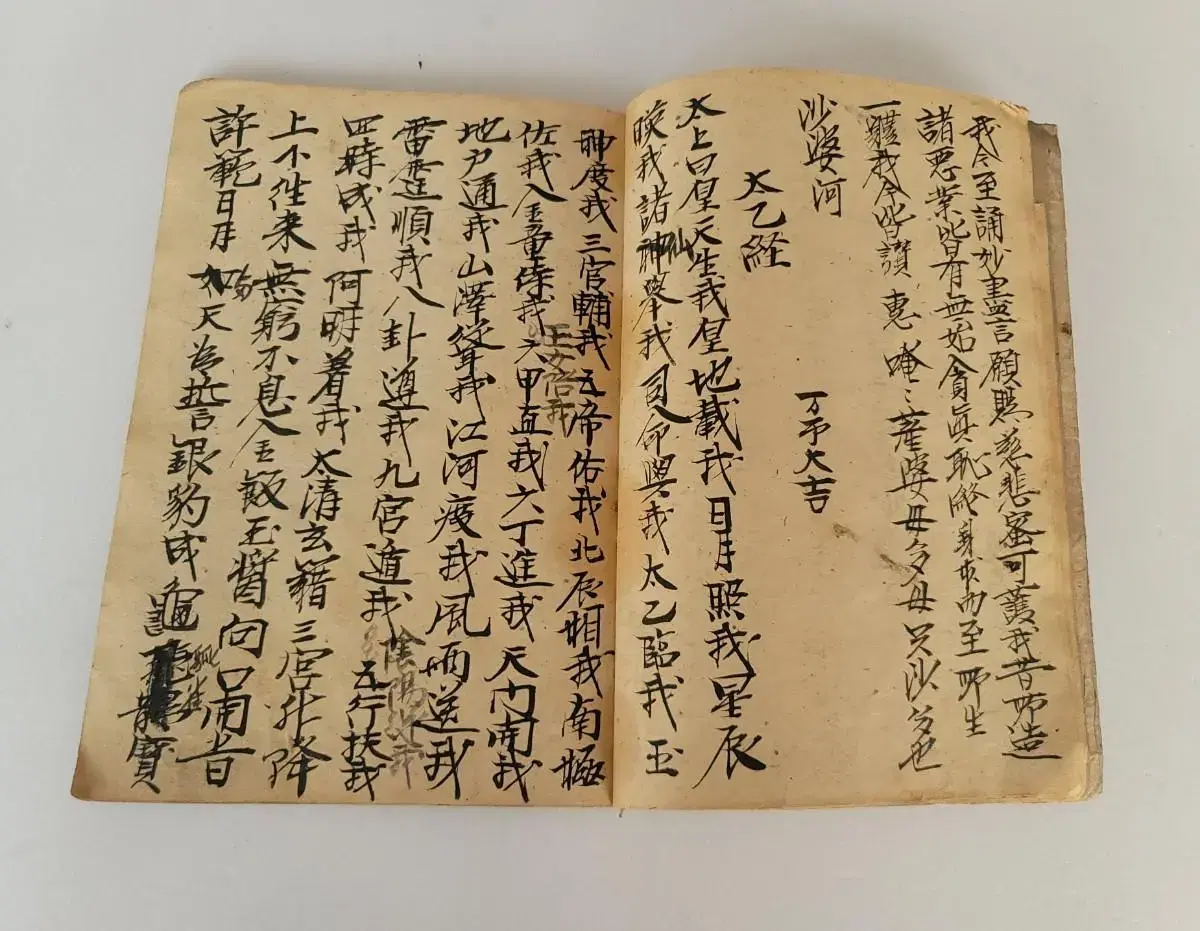 我今至誦妙真言願賜慈悲密可護我昔所造
諸惡業皆有無始貪眞恥終身求而至所生
一軆我今皆讃惠唵〻産婆毋多毋只沙多也
沙婆河
万予大吉
太乙経
太上曰皇天生我皇地載我日月照我星辰
暎我諸神仙擧我司命與我太乙臨我玉
神度我三官輔我五帝佑我北辰相我南極
佐我金童侍我玉女陪我六甲直我六丁進我天門開我
地户通我山澤從我江河度我風雨送我
雷霆順我八卦遵我九宮遁我陰陽我五行扶我
四時成我阿明着我太清玄籍三宮升降
上下往来無窮不息金飯玉醬向口甫旨
許範日月如天為誓銀豹成龜龍寳